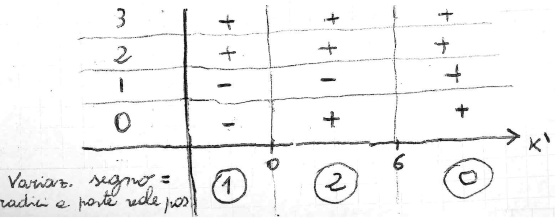 3 + + +
2 + + +
1 - - +
0 - + +
0 6 K'
Variaz. segno = 1 2 0
radici a parte reale pos